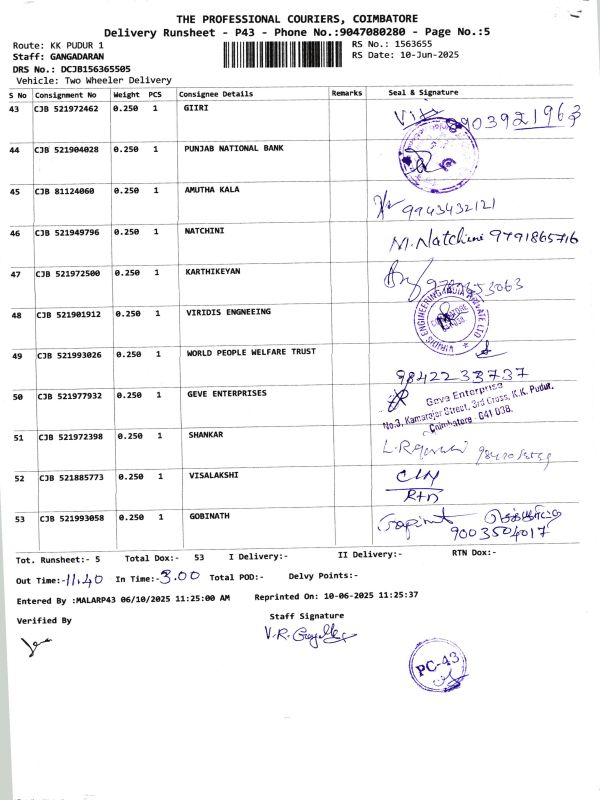 THE PROFESSIONAL COURIERS, COIMBATORE
Delivery Runsheet - P43 - Phone No.:9047080280 - Page No.:5
Route: KK PUDUR 1
RS No.: 1563655
Staff: GANGADARAN
RS Date: 10-Jun-2025
DRS No.: DCJB156365505
Vehicle: Two Wheeler Delivery
S No Consignment No Weight PCS Consignee Details Remarks Seal & Signature
43 CJB 521972462 0.250 1 GIIRI
44 CJB 521904028 0.250 1 PUNJAB NATIONAL BANK
45 CJB 81124060 0.250 1 AMUTHA KALA 9943432121
46 CJB 521949796 0.250 1 NATCHINI M. Natchini 9791865716
47 CJB 521972500 0.250 1 KARTHIKEYAN
48 CJB 521901912 0.250 1 VIRIDIS ENGNEEING
49 CJB 521993026 0.250 1 WORLD PEOPLE WELFARE TRUST
9842233737
50 CJB 521977932 0.250 1 GEVE ENTERPRISES Geve Enterprise
No.3, Kamarajar Street, 3rd Cross, K.K. Pudur,
Coimbatore 641 038.
51 CJB 521972398 0.250 1 SHANKAR
52 CJB 521885773 0.250 1 VISALAKSHI
RTN
53 CJB 521993058 0.250 1 GOBINATH
9003504017
Tot. Runsheet:- 5 Total Dox:- 53 I Delivery:- II Delivery:- RTN Dox:-
Out Time:-11.40 In Time:-3.00 Total POD:- Delvy Points:-
Entered By :MALARP43 06/10/2025 11:25:00 AM Reprinted On: 10-06-2025 11:25:37
Verified By
Staff Signature
PC-43